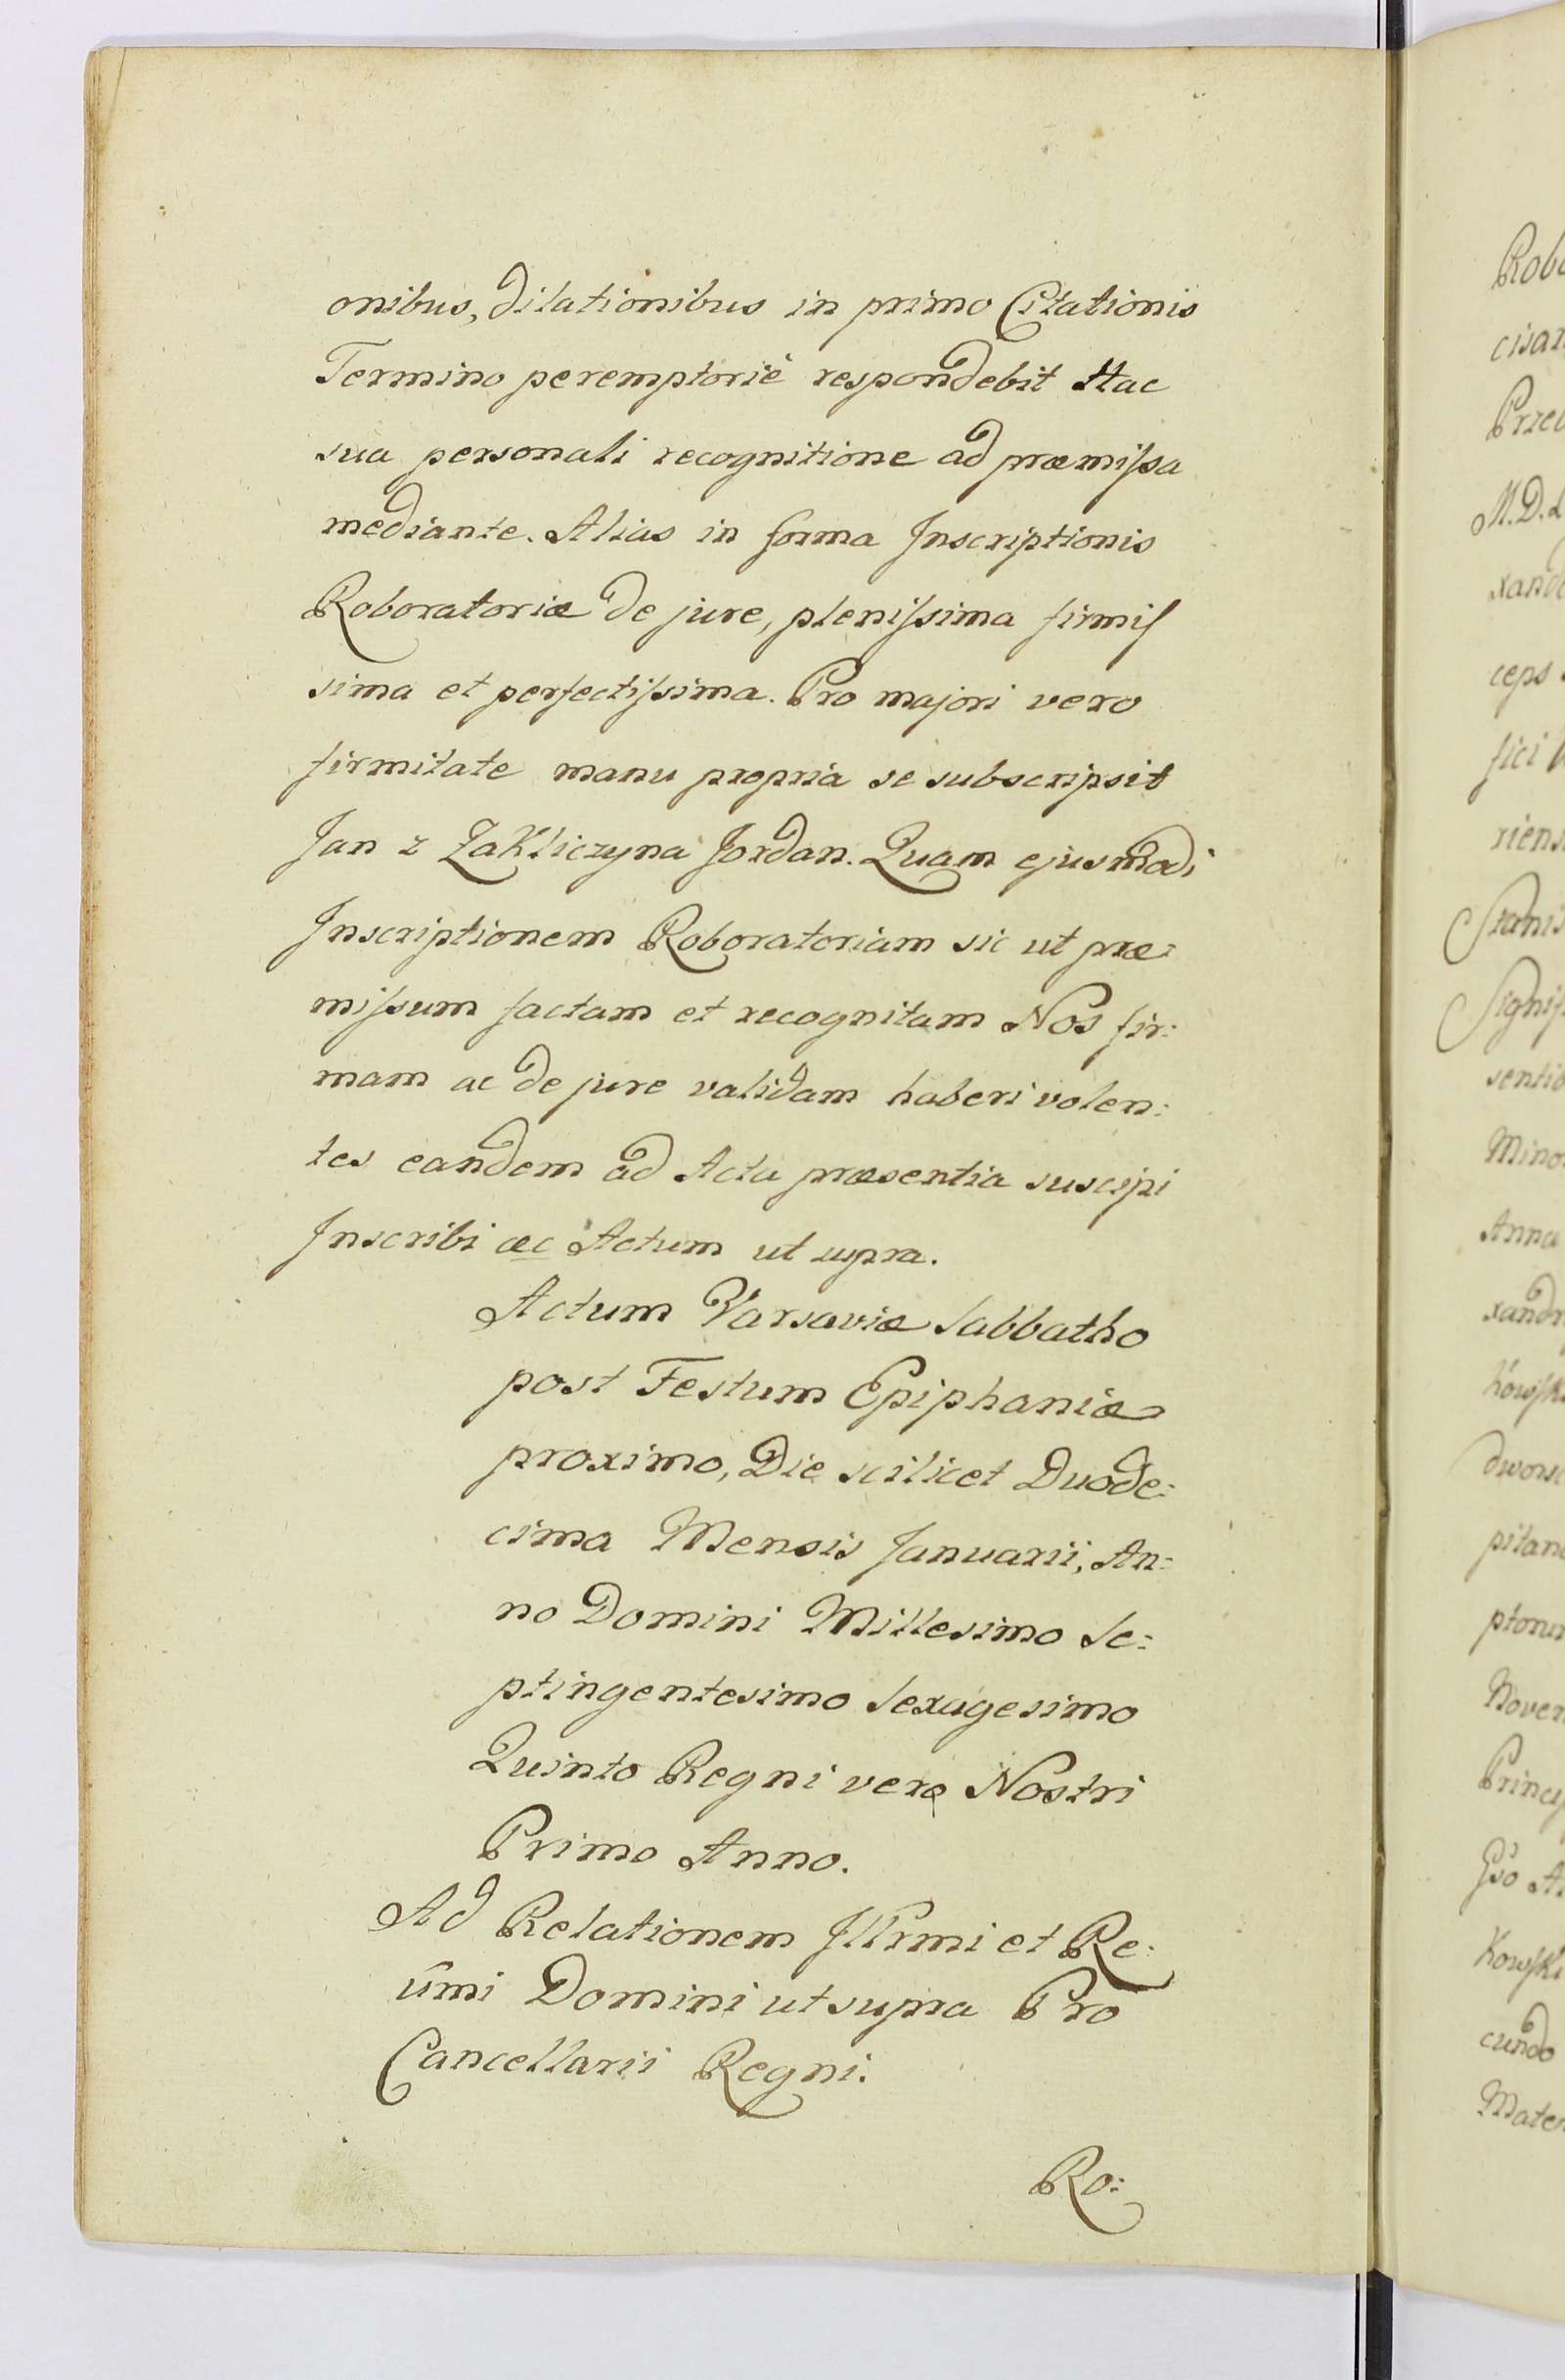 onibus, dilationibus in primo Citationis
Termino peremptorie respondebit Hac
sua personali recognitione ad præmiſsa
mediante. Alias in forma Inscriptionis
Roboratoriæ de jure, pleniſsima firmiſ
sima et perfectiſsima. Pro majori vero
firmitate manu propria se subscripsit
Jan z Zakliczyna Jordan. Quam ejusmodi
Inscriptionem Roboratoriam sic ut præ:
miſsum factam et recognitam Nos fir:
mam ac de jure validam haberi volen:
tes eandem ad Acta præsentia suscipi
Inscribi &c Actum ut supra.
Actum Varsaviæ Sabbatho
post Festum Epiphaniæ
proximo, Die scilicet Duode:
cima Mensis Januarii, An:
no Domini Millesimo Se:
ptingentesimo Sexagesimo
Quinto Regni vero Nostri
Primo Anno.
Ad Relationem Jllrmi et Re:
ũmi Domini ut supra Pro
Cancellarii Regni.
Ro:
Robo
cisar
Prze
M.D.L
xand
ceps
fici
riens
Stanis
Signif
sentib
Mino
Anna
xandr
kowſki
dwors
pitan
ptoru
Novem
Princip
Gso A
Kowſki
cundo
Mater